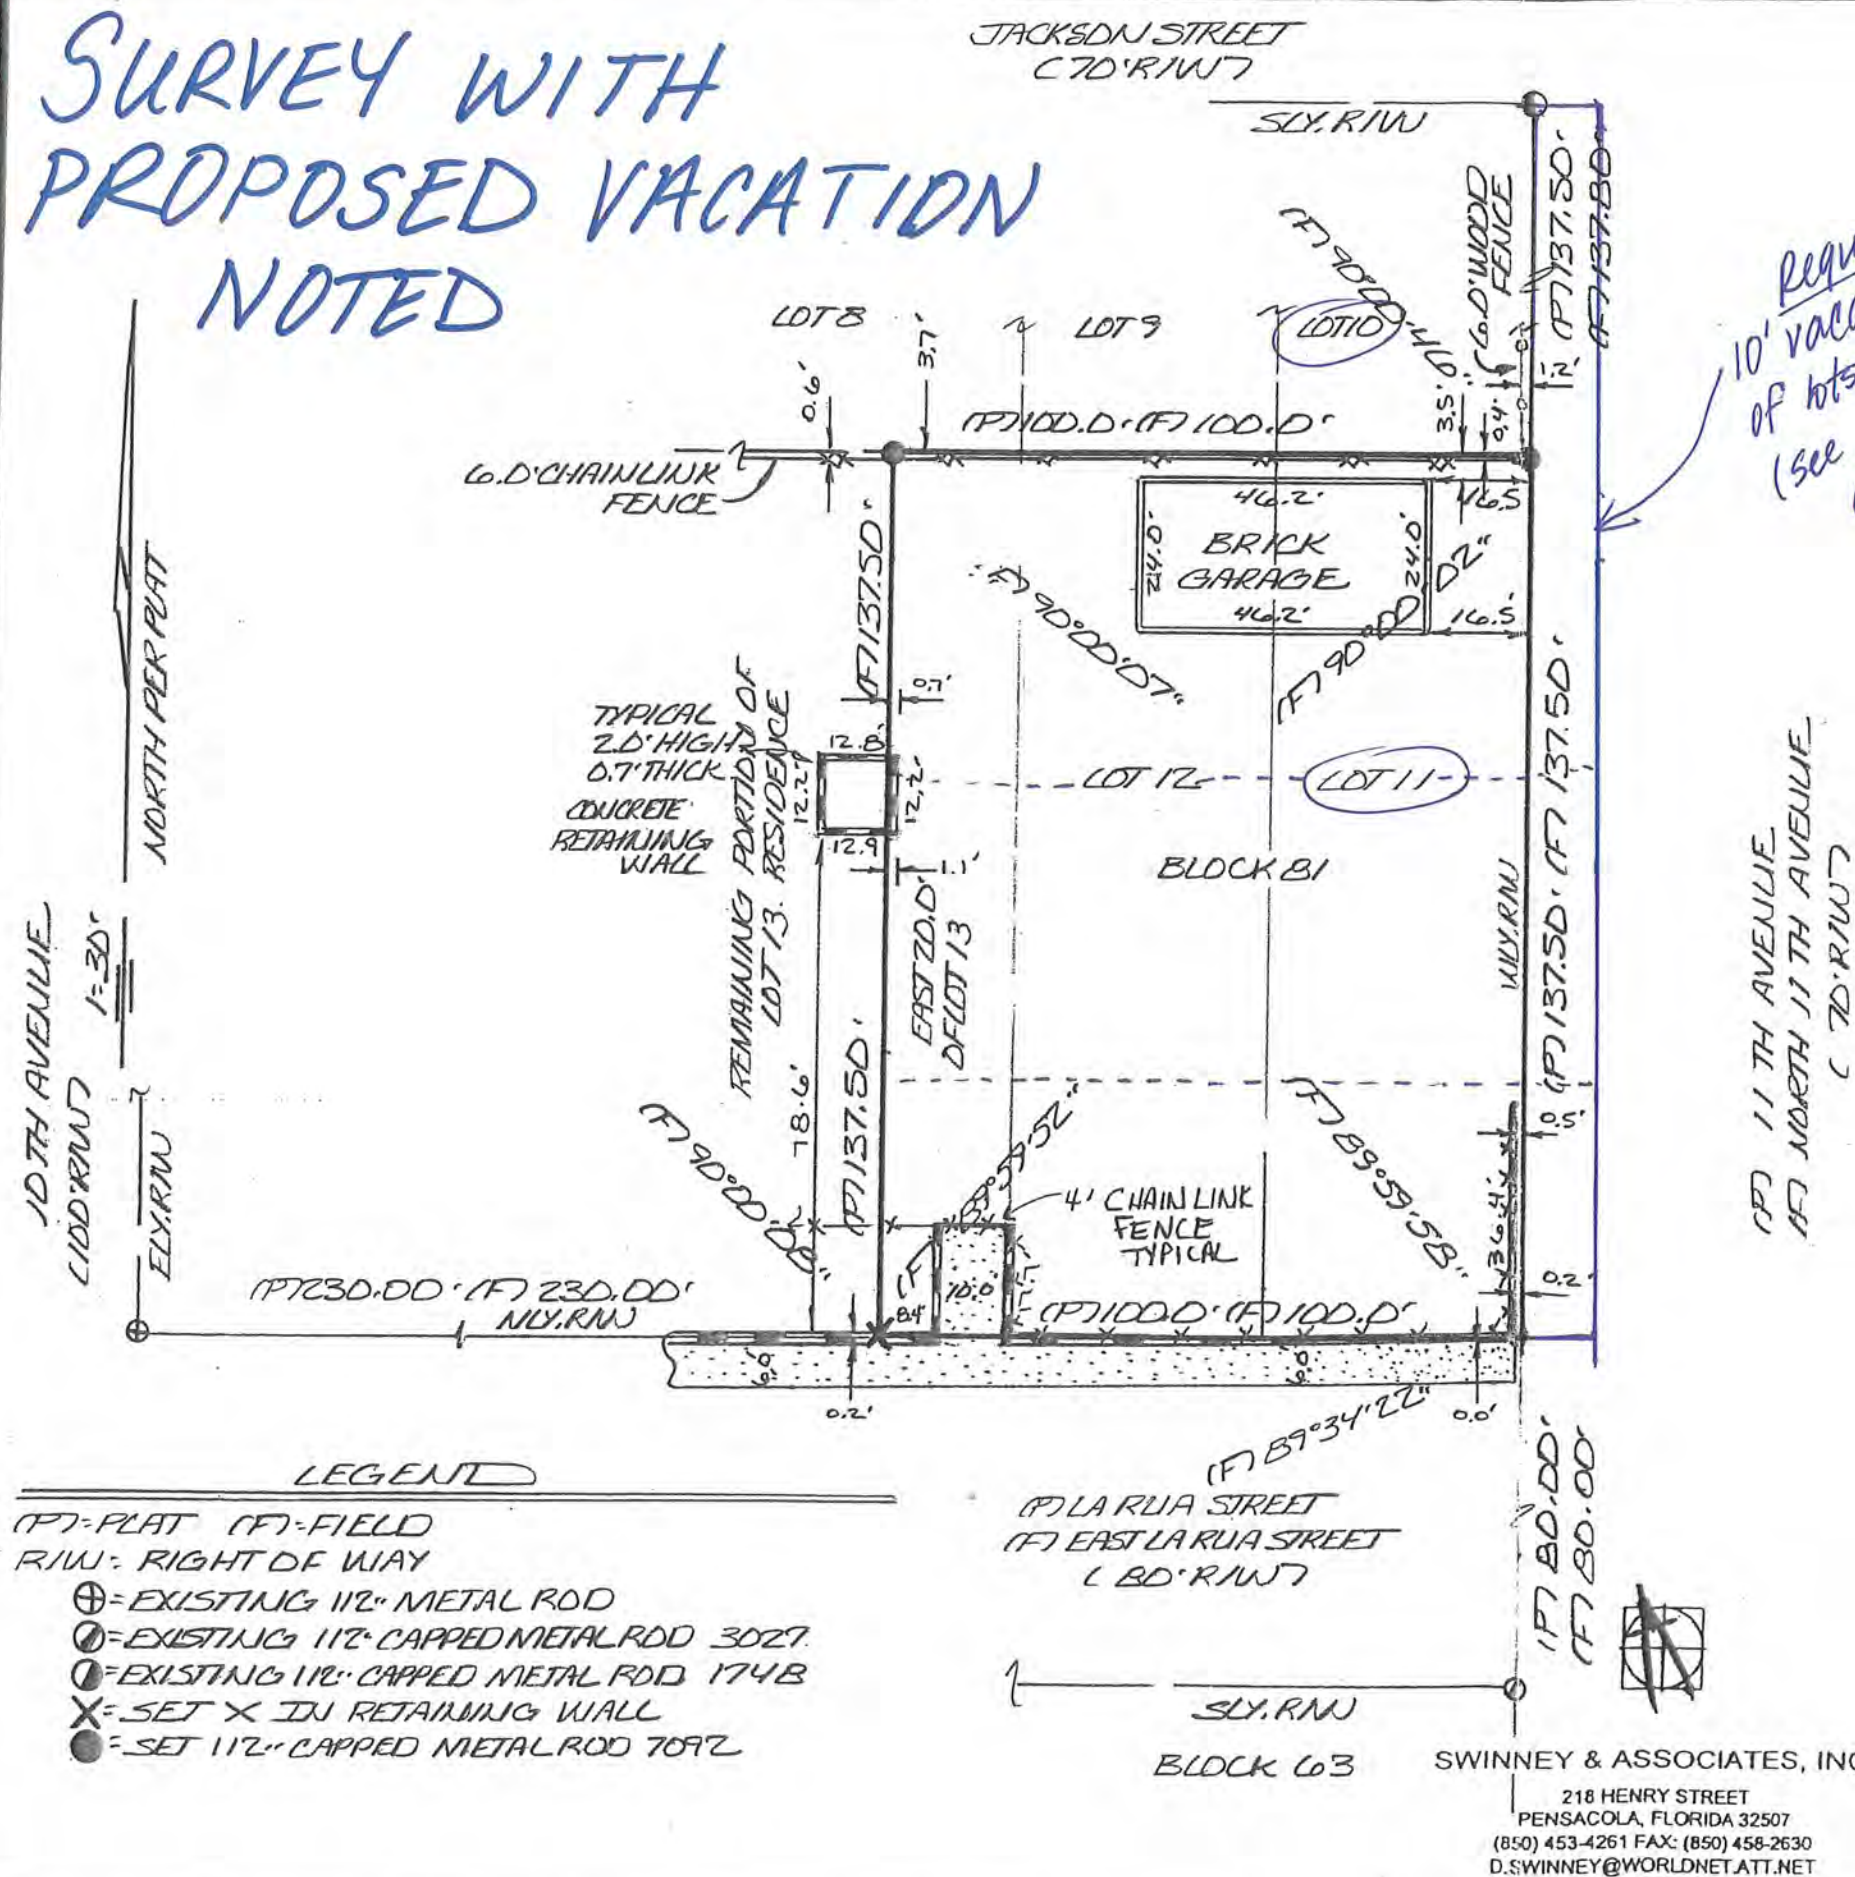 SURVEY WITH
PROPOSED VACATION
NOTED
JACKSON STREET
(70' R/W)
SLY. R/W
(P) 137.50'
(F) 137.80'
6.0' WOOD
FENCE
(F) 90°00'
LOT 8
LOT 9
LOT 10
3.7'
0.6'
3.5'
0.4'
1.2'
10' vac
of lots
(see
(P) 100.0' (F) 100.0'
6.0' CHAINLINK
FENCE
46.2'
16.5
24.0'
BRICK
GARAGE
24.0'
46.2'
16.5'
(F) 90°00'02"
(F) 137.50'
90°00'07"
NORTH PER PLAT
1"=30'
0.7'
TYPICAL
2.0' HIGH
0.7' THICK
CONCRETE
RETAINING
WALL
12.8'
12.2'
12.2'
12.9
1.1'
REMAINING PORTION OF
LOT 13. RESIDENCE
LOT 12
LOT 11
BLOCK 81
EAST 20.0'
OF LOT 13
WLY. R/W
(P) 137.50' (F) 137.50'
(P) 11 TH AVENUE
(F) NORTH 11 TH AVENUE
( 70' R/W)
10TH AVENUE
(100' R/W)
ELY. R/W
78.6'
(P) 137.50'
(F) 90°00'
89°59'52"
(F) 89°59'58"
4' CHAIN LINK
FENCE
TYPICAL
0.5'
36.4'
0.2'
8.4'
10.0'
(P) 230.00' (F) 230.00'
NLY. R/W
(P) 100.0' (F) 100.0'
6.0'
6.0'
0.2'
0.0'
(F) 89°34'22"
LEGEND
(P)=PLAT (F)=FIELD
R/W= RIGHT OF WAY
=EXISTING 1/2" METAL ROD
=EXISTING 1/2" CAPPED METAL ROD 3027
=EXISTING 1/2" CAPPED METAL ROD 1748
X=SET X IN RETAINING WALL
=SET 1/2" CAPPED METAL ROD 7092
(P) LA RUA STREET
(F) EAST LA RUA STREET
( 80' R/W)
(P) 80.00'
(F) 80.00'
SLY. R/W
BLOCK 63
SWINNEY & ASSOCIATES, INC
218 HENRY STREET
PENSACOLA, FLORIDA 32507
(850) 453-4261 FAX: (850) 458-2630
D.SWINNEY@WORLDNET.ATT.NET